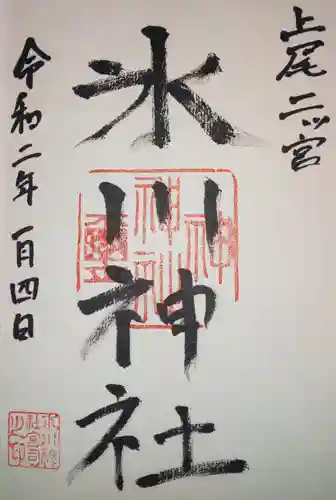 上尾二ッ宮
氷川神社
令和二年一月四日